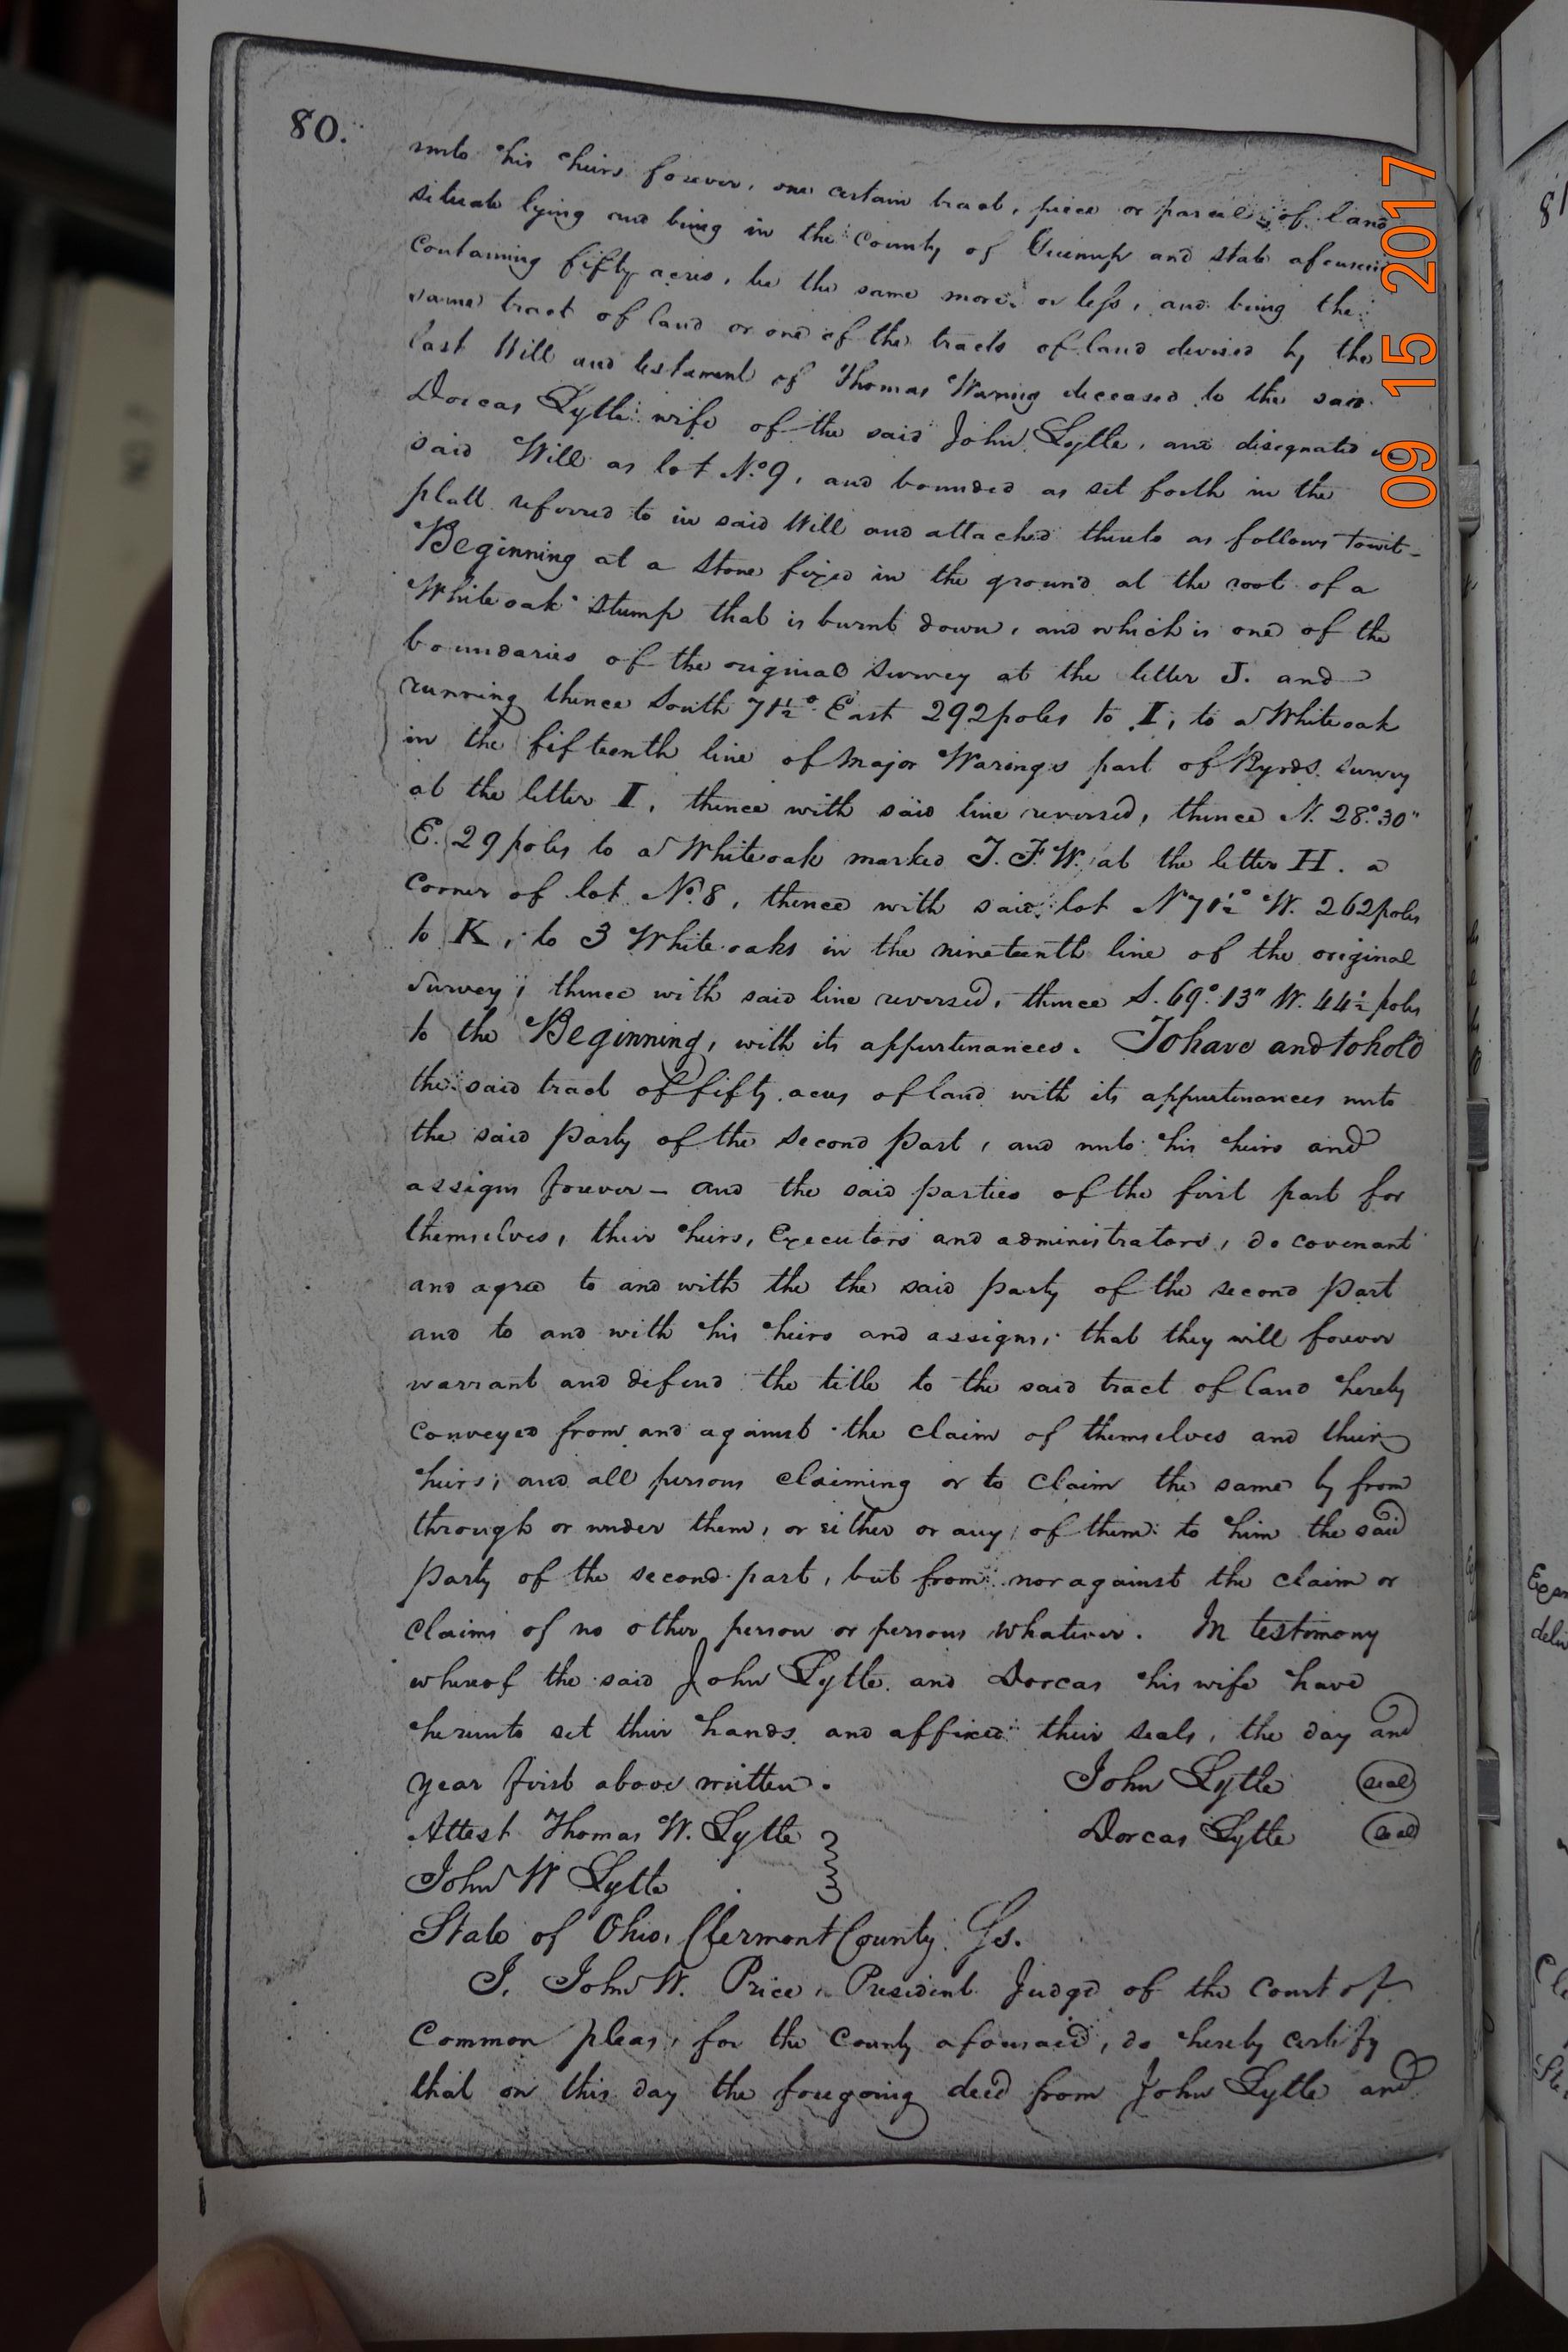 80.
unto his heirs forever, one certain tract, piece or parcel of land
situate lying and being in the county of Greenup and state aforesaid
containing fifty acres, be the same more or less, and being the
same tract of land or one of the tracts of land devised by the
last Will and testament of Thomas Waring deceased to the said
Dorcas Lytle wife of the said John Lytle, and designated in
said Will as lot No. 9, and bounded as set forth in the
platt referred to in said Will and attached thereto as follows towit-
Beginning at a stone fixed in the ground at the root of a
White oak stump that is burnt down, and which is one of the
boundaries of the original survey at the letter J. and
running thence South 71½° East 292 poles to I, to a White oak
in the fifteenth line of Major Warings part of Byrds survey
at the letter I, thence with said line reversed, thence N. 28° 30"
E. 29 poles to a White oak marked T. F. W. at the letter H. a
corner of lot No. 8, thence with said lot N 71½° W. 262 poles
to K, to 3 White oaks in the nineteenth line of the original
survey; thence with said line reversed, thence S. 69° 13" W. 44½ poles
to the Beginning, with its appurtenances. To have and to hold
the said tract of fifty acres of land with its appurtenances unto
the said party of the second part, and unto his heirs and
assigns forever - and the said parties of the first part for
themselves, their heirs, Executors and administrators, do covenant
and agree to and with the the said party of the second part
and to and with his heirs and assigns, that they will forever
warrant and defend the title to the said tract of land hereby
conveyed from and against the claim of themselves and their
heirs, and all persons claiming or to claim the same by from
through or under them, or either or any of them to him the said
party of the second part, but from nor against the claim or
claims of no other person or persons whatever. In testimony
whereof the said John Lytle and Dorcas his wife have
hereunto set their hands and affixed their seals, the day and
year first above written. John Lytle (seal)
Attest Thomas W. Lytle Dorcas Lytle (seal)
John W Lytle
State of Ohio, Clermont County. Ss.
I, John W. Price, President Judge of the Court of
Common pleas, for the County aforesaid, do hereby certify
that on this day the foregoing deed from John Lytle and
09 15 2017